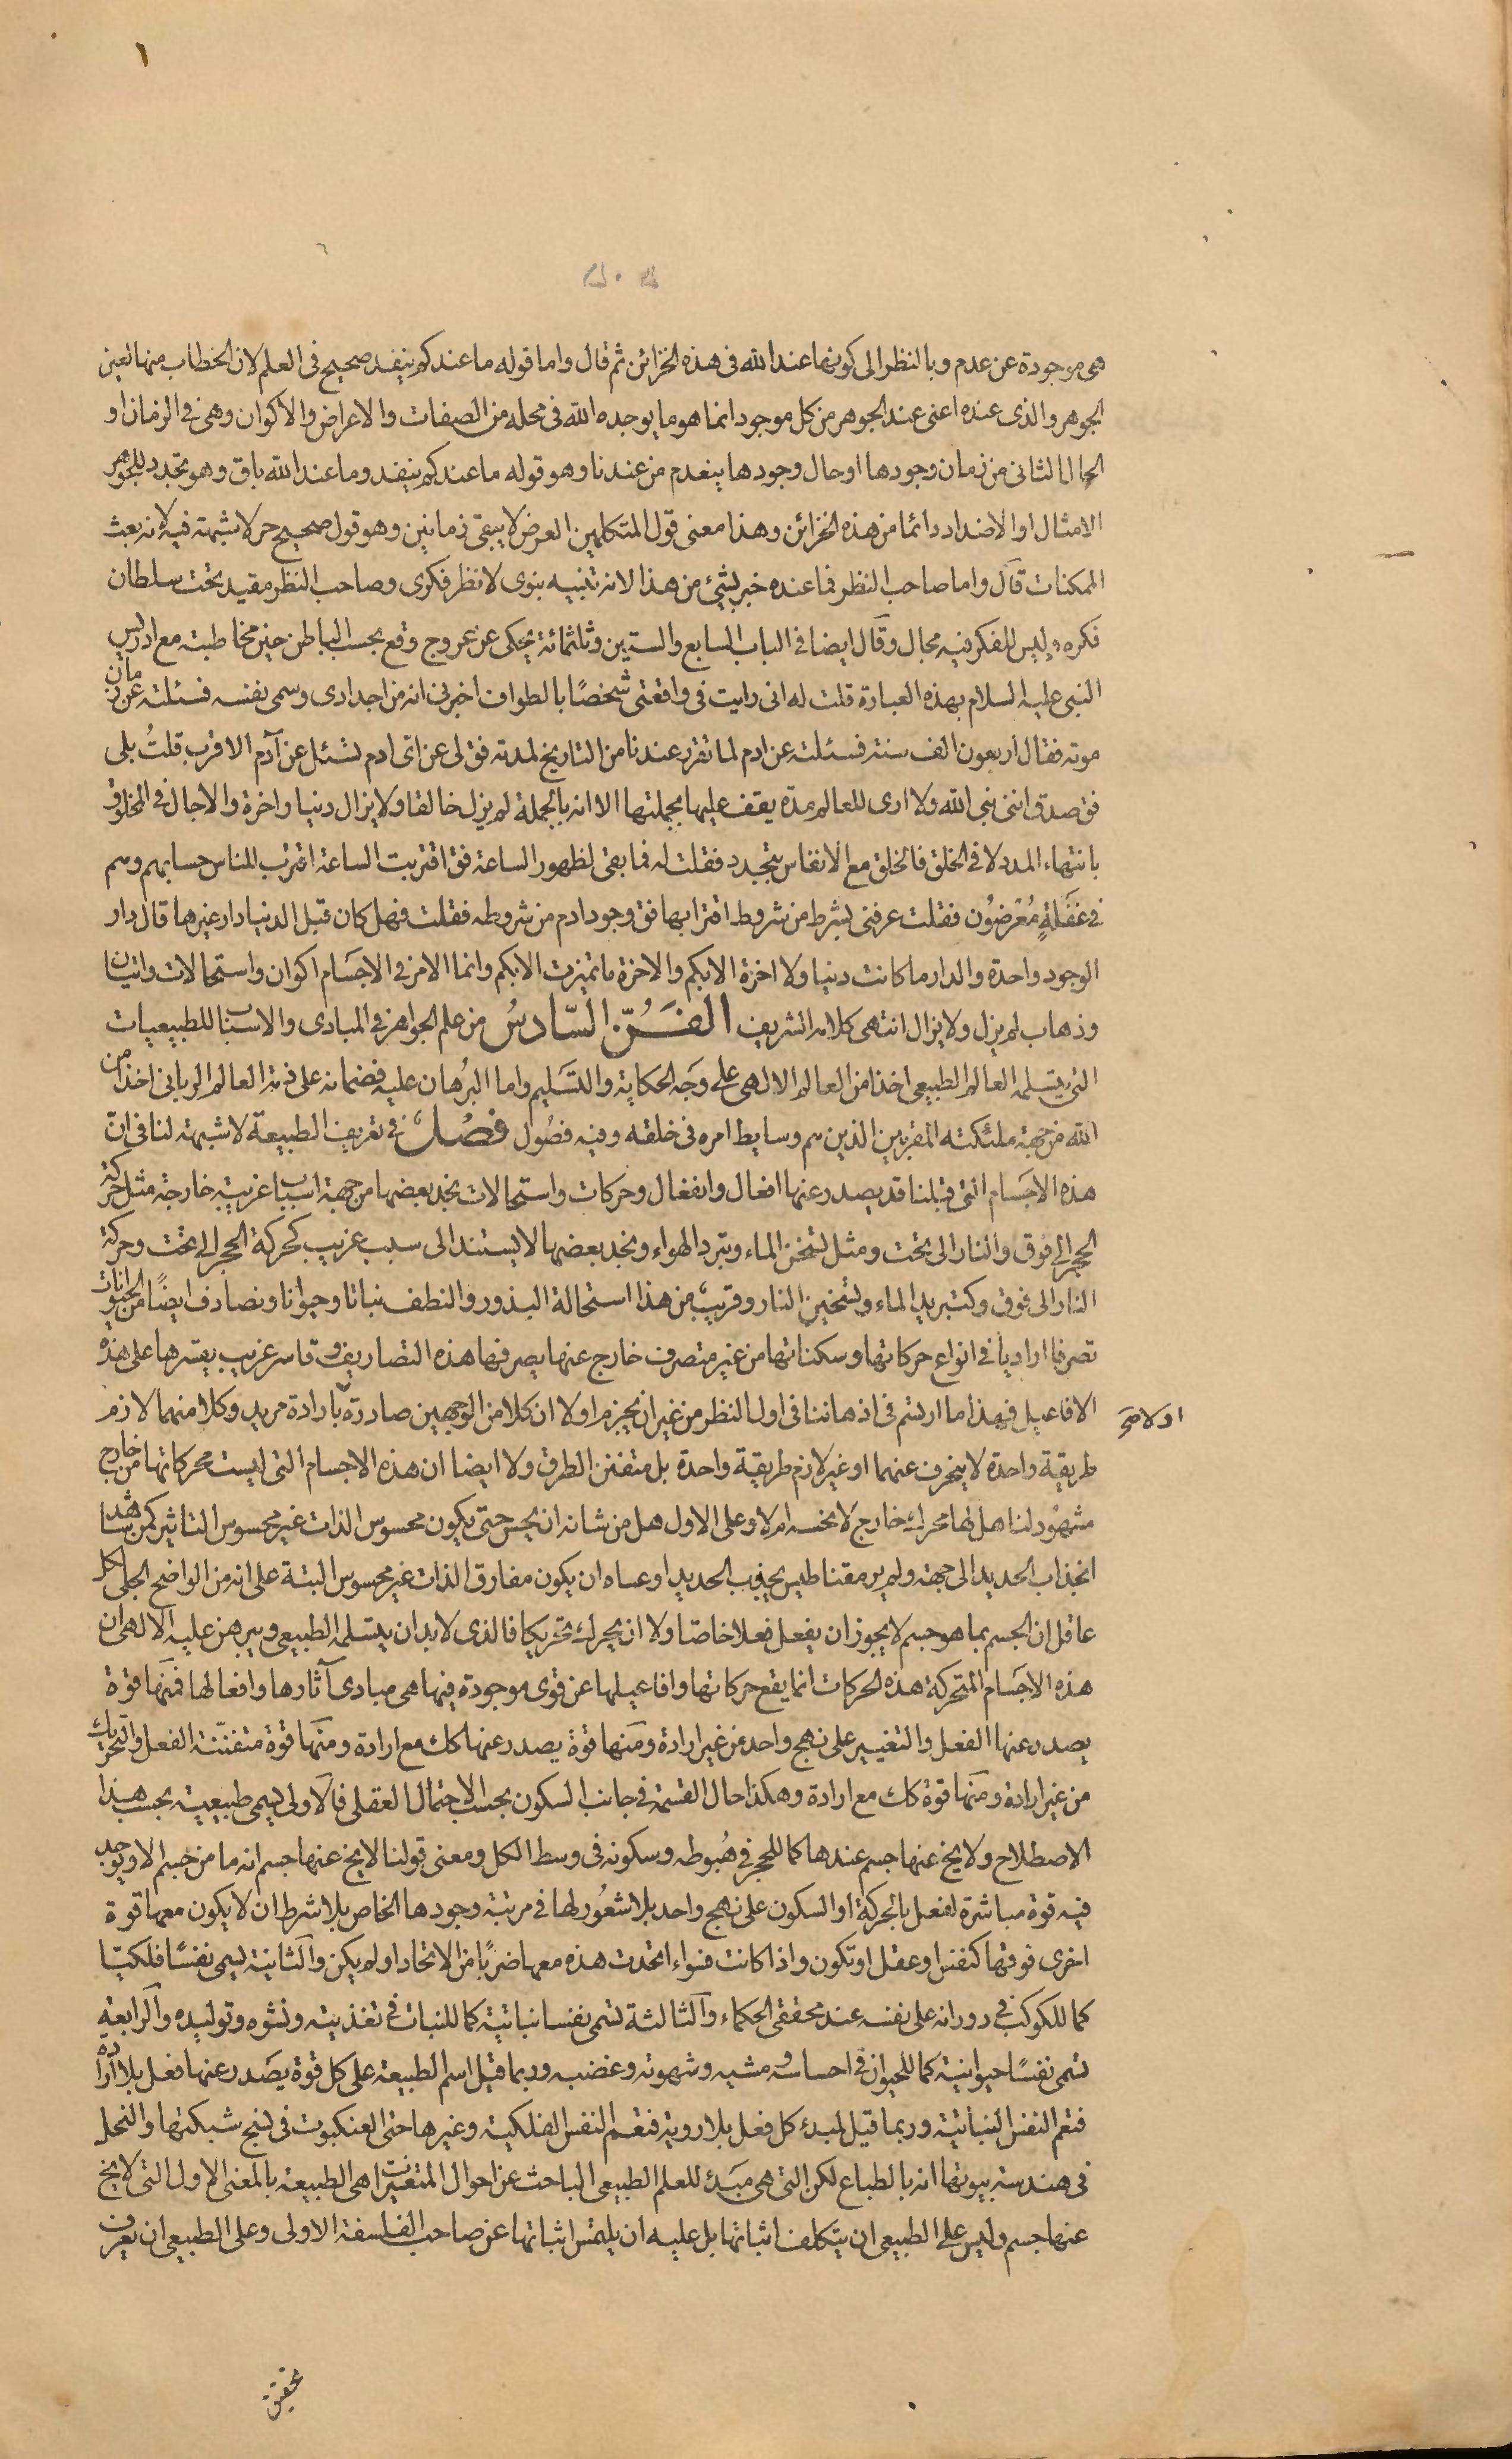 ١
هى موجودة عن عدم وبالنظر الى كونها عند الله فى هذه الخزائن ثم قال واما قوله ما عندكم ينفد صحيح فى العلم لان الخطاب منها لعين
الجوهر والذى عنده اعنى عند الجوهر من كل موجود انما هو ما يوجده الله فى محله من الصفات والاعراض والاكوان وهى فى الزمان او
الحال الثانى من زمان وجودها او حال وجودها ينعدم من عندنا وهو قوله ما عندكم ينفد وما عند الله باق وهو تجدد للجوهر
الامثال او الاضداد دائما من هذه الخزائن وهذا معنى قول المتكلمين العرض لا يبقى زمانين وهو قول صحيح حر لا شبهة فيه لانه بعث
الممكنات قال واما صاحب النظر فما عنده خبر بشئ من هذا لانه تنبيه بنوى لا نظر فكرى وصاحب النظر مقيد تحت سلطان
فكره وليس للفكر فيه مجال وقال ايضا فى الباب السابع والستين وثلثمائة يحكى عن عروج وقع بحسب الباطن حين مخاطبته مع ادريس
النبى عليه السلام بهذه العبارة قلت له انى رايت فى واقعتى شخصًا بالطواف اخبرنى انه من اجدادى وسمى نفسه فسئلته عن زمان
موته فقال اربعون الف سنة فسئلته عن ادم لما تقرر عندنا من التاريخ لمدته فق لى عن اى ادم تسئل عن آدم الاقرب قلتُ بلى
فق صدق اننى نبى الله ولا ارى للعالم مدة يقف عليها بجملتها الا انه بالجملة لم يزل خالقا ولا يزال دنيا واخرة والاجال فى المخلوق
بانتهاء المدد لا فى الخلق فالخلق مع الانفاس يتجدد فقلت له فما بقى لظهور الساعة فق اقتربت الساعة اقترب للناس حسابهم وهم
فى غَفلةٍ مُعْرِضُون فقلت عرفنى بشرط من شروط اقترابها فق وجود ادم من شروطه فقلت فهل كان قبل الدنيا دار غيرها قال دار
الوجود واحدة والدار ما كانت دنيا ولا اخرة الا بكم والاخرة ما تميزت الا بكم وانما الامر فى الاجسام اكوان واستحالات واتيان
وذهاب لم يزل ولا يزال انتهى كلامه الشريف الفَـنُّ السّادسُ من علم الجواهر فى المبادى والاسباب للطبيعيات
التى يتسلمه العالم الطبيعى اخذا من العالم الالهى على وجه الحكاية والتسليم واما البرهان عليه فضمانه على ذمة العالم الربانى اخذا من
الله من جهة ملئكته المقربين الذين هم وسايط امره فى خلقه وفيه فصُول فصْل فى تعريف الطبيعة لا شبهة لنا فى انّ
هذه الاجسام التى قبلنا قد يصدر عنها افعال وانفعال وحركات واستحالات نجد بعضها من جهة اسباب غريبة خارجة مثل حركة
الحجر الى فوق والنار الى تحت ومثل تسخن الماء وتبرد الهواء ونجد بعضها لا يستند الى سبب غريب كحركة الحجر الى تحت وحركة
النار الى فوق وكتبريد الماء وتسخين النار وقريب من هذا استحالة البذور والنطف نباتا وحيوانا ونصادف ايضًا من الحيوانات
تصرفا اراديا فى انواع حركاتها وسكناتها من غير متصرف خارج عنها يصرفها هذه التصاريف وقاسر غريب يقسرها على هذه
الافاعيل فهذا ما ارتسم فى اذهاننا فى اول النظر من غير ان يجزم اولا ان كلا من الوجهين صادرة بارادة مريد وكلا منهما لازم
او لا صح
طريقة واحدة لا ينحرف عنهما او غير لازم طريقة واحدة بل متفنن الطرق ولا ايضا ان هذه الاجسام التى ليست محركاتها من خارج
مشهُود لنا هل لها محرك خارج لا نحسه ام لا وعلى الاول هل من شانه ان يحس حتى يكون محسوس الذات غير محسوس التاثير كمن شاهد
انجذاب الحديد الى جهة ولم ير مقناطيس يجذب الحديد او عساه ان يكون مفارق الذات غير محسوس البتة على انه من الواضح الجلى لكل
عاقل ان الجسم بما هو جسم لا يجوز ان يفعل فعلا خاصّا ولا ان يحرك تحريكا فالذى لا بد ان يتسلمه الطبيعى ويبرهن عليه الالهى ان
هذه الاجسام المتحركة هذه الحركات انما يقع حركاتها وافاعيلها عن قوى موجودة فيها هى مبادى آثارها وافعالها فمنها قوة
يصدر عنها الفعل والتغيير على نهج واحد من غير ارادة ومنها قوة يصدر عنها كك مع ارادة ومنها قوة متفننة الفعل والتحريك
من غير ارادة ومنها قوة كك مع ارادة وهكذا حال القسمة فى جانب السكون بحسب الاحتمال العقلى فالاولى يسمى طبيعية بحسب هذا
الاصطلاح ولا يخ عنها جسم عندها كما للحجر فى هُبوطه وسكونه فى وسط الكل ومعنى قولنا لا يخ عنها جسم انه ما من جسم الا ويوجد
فيه قوة مباشرة لفعل بالحركة او السكون على نهج واحد بلا شعُور لها فى مرتبة وجودها الخاص بلا شرط ان لا يكون معها قوة
اخرى فوقها كنفس او عقل او تكون واذا كانت فسواء اتحدت هذه معها ضربًا من الاتحاد او لم يكن والثانية يسمى نفسًا فلكيّا
كما للكوكب فى دورانه على نفسه عند محققى الحكماء والثالثة تسمى نفسا نباتية كما للنبات فى تغذيته ونشوه وتوليده والرابعة
تسمى نفسًا حيوانية كما للحيوان فى احساسه ومشيه وشهوته وغضبه وربما قيل اسم الطبيعة على كل قوة يصَدر عنها فعل بلا ارادة
فتعم النفس النباتية وربما قيل لمبدء كل فعل بلا روية فتعم النفس الفلكية وغيرها حتى العنكبوت فى نسج شبكتها والنحل
فى هندسة بيوتها انه بالطباع لكن التى هى مبَدء للعلم الطبيعى الباحث عن احوال المتغيرات هى الطبيعة بالمعنى الاول التى لا يخ
عنها جسم وليس على الطبيعى ان يتكلف اثباتها بل عليه ان يلتمس اثباتها عن صاحب الفلسفة الاولى وعلى الطبيعى ان يعرف
تحقيق